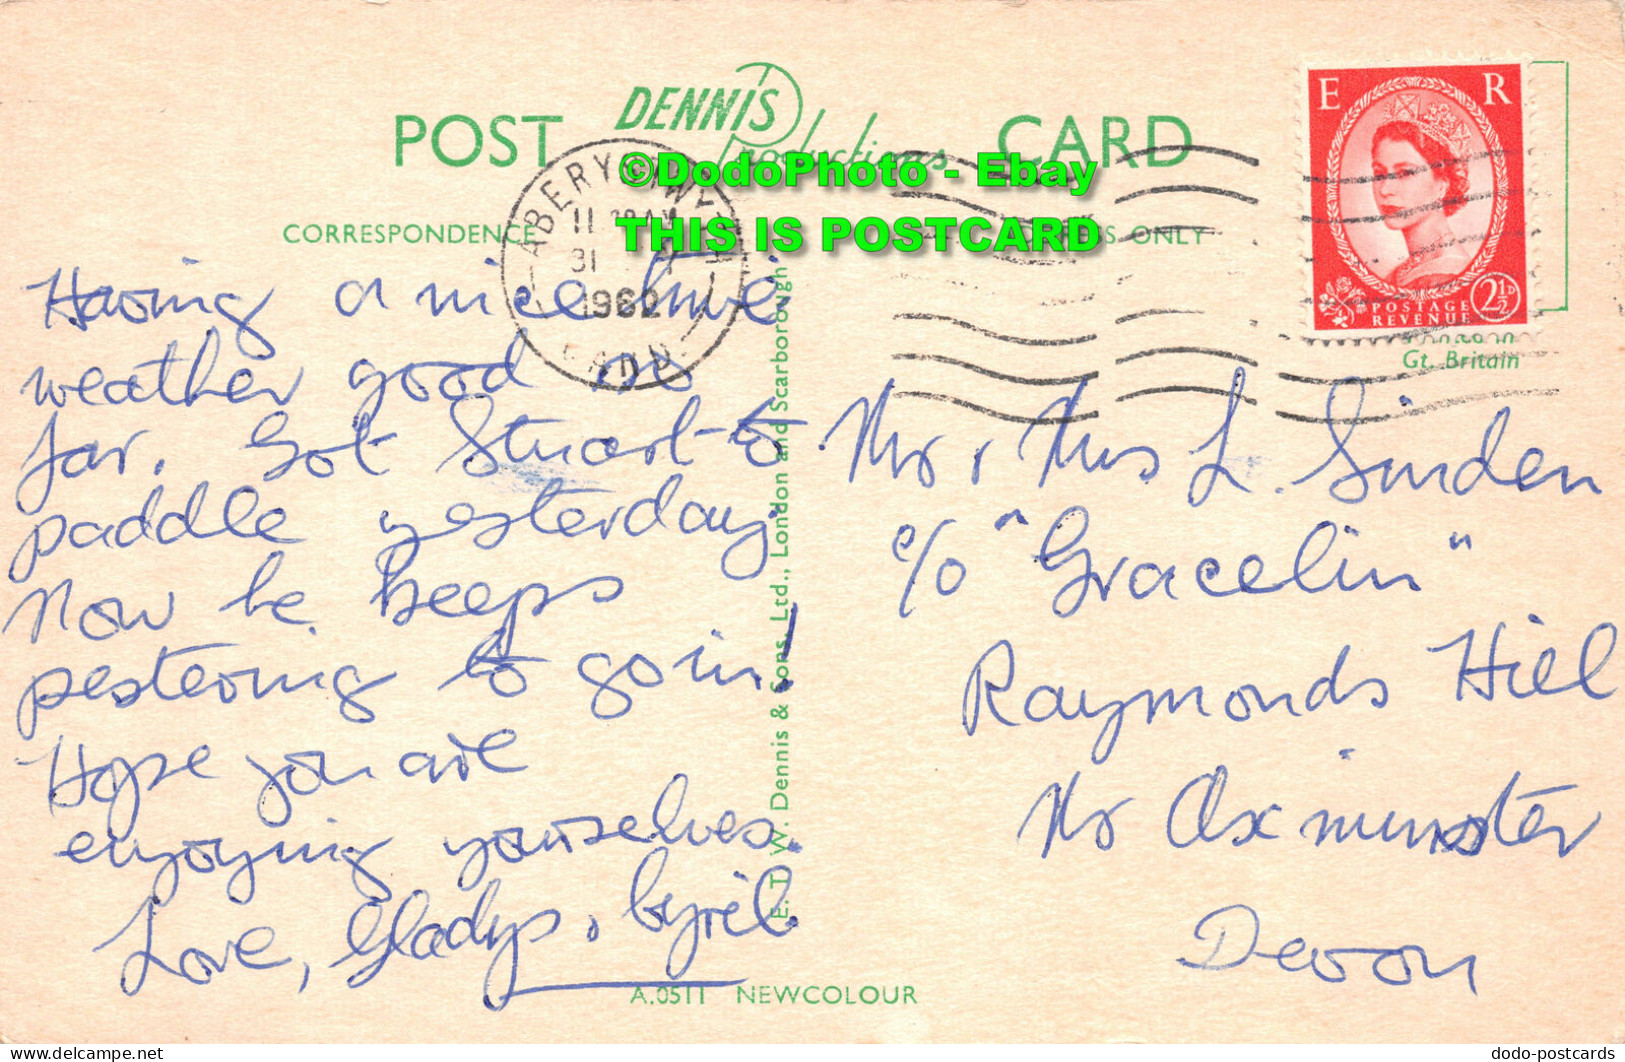 POST DENNIS Productions CARD
©DodoPhoto - Ebay
THIS IS POSTCARD
CORRESPONDENCE
ONLY
11
31
1962
E R
POSTAGE
REVENUE
2½D
Gt. Britain
Having a nice time
weather good so
far. Got Stuart to
paddle yesterday
Now he keeps
pestering to go in!
Hope you are
enjoying yourselves.
Love, Gladys, Cyril.
Mr & Mrs L. Sinden
c/o "Gracelin"
Raymonds Hill
Nr Axminster
Devon
E. T. W. Dennis & Sons, Ltd., London and Scarborough
A.0511 NEWCOLOUR
dodo-postcards